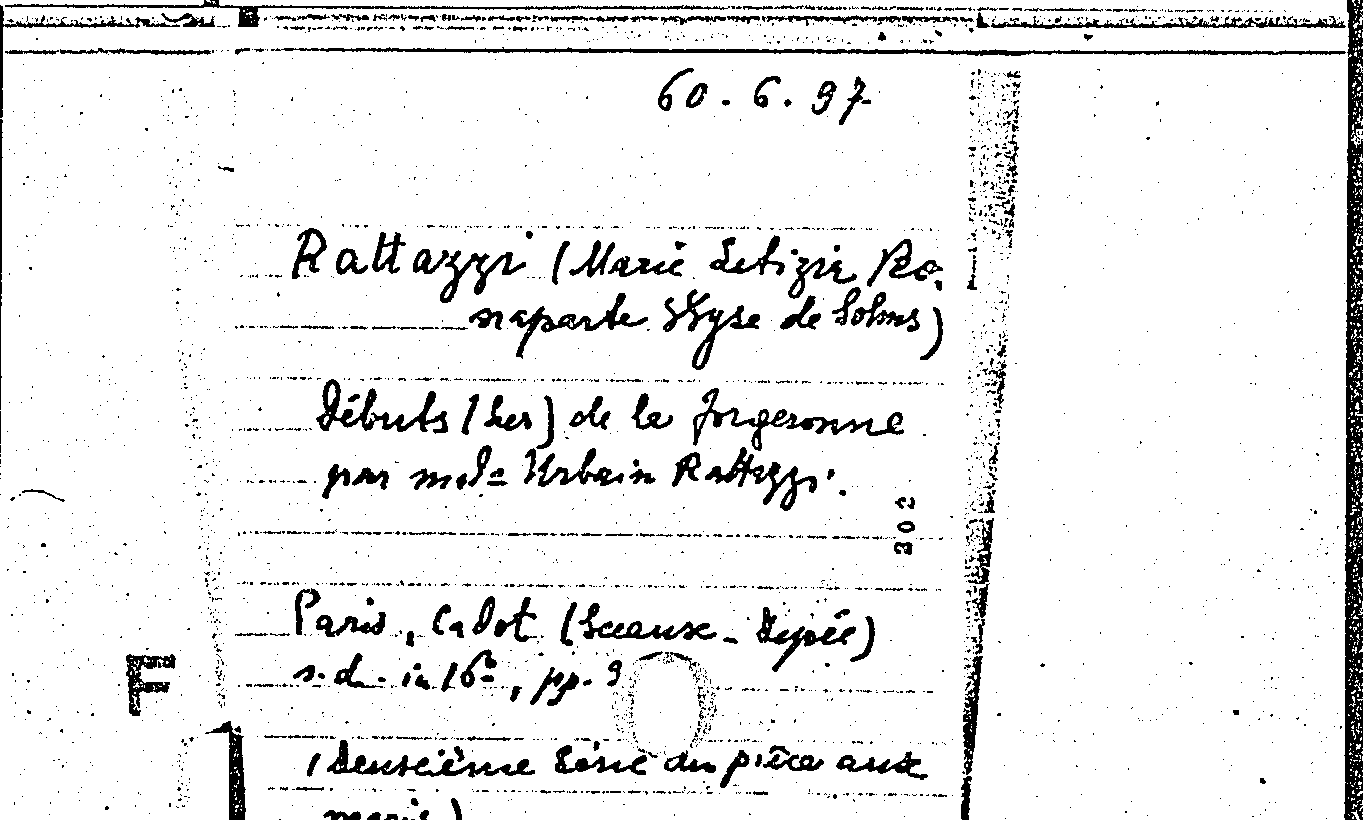 60.6.97
Rattazzi (Marie Letizia Bo-
naparte Wyse de Solms)
Débuts (Les) de la forgeronne
par mde Urbain Rattazzi.
302
Paris, Cadot (Sceaux-Dépée)
s.d. in 16º, pp. 9
F
(Deuxième série du piège aux
maris)